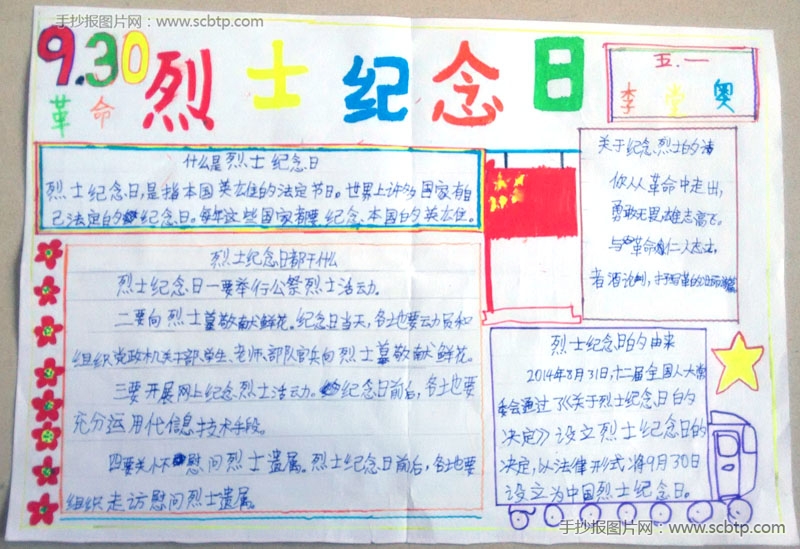 手抄报图片网:www.scbtp.com
9.30 烈士纪念日
革命
五.一
李 堂 奥
什么是烈士纪念日
烈士纪念日,是指本国英雄的法定节日。世界上许多国家有
自己法定的纪念日。每年这些国家有要纪念本国的英雄。
关于纪念烈士的诗
你从革命中走出,
勇敢无畏雄志高飞。
与革命仁人志士,
烈士纪念日都干什么
烈士纪念日一要举行公祭烈士活动。
二要向烈士墓敬献鲜花。纪念日当天,各士也要动员和
组织党政机关干部学生、老师、部队官兵向烈士墓敬献鲜花。
三要开展网上纪念烈士活动。纪念日前后,各士也要
充分运用代信息技术手段。
四要关怀慰问烈士遗属。烈士纪念日前后,各士也要
组织走访慰问烈士遗属。
烈士纪念日的由来
2014年8月31日,十二届全国人大常
委会通过了《关于烈士纪念日的
决定》设立烈士纪念日的
决定,以法律形式将9月30日
设立为中国烈士纪念日。
手抄报图片网:www.scbtp.com